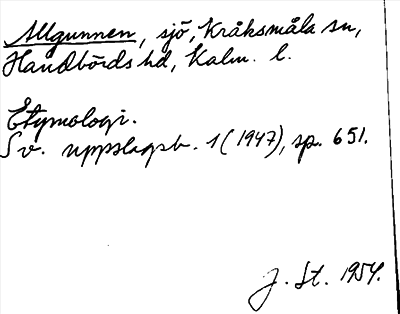 Allgunnen, sjö, Kråksmåla sn,
Handbörds hd, Kalm. l.
Etymologi.
Sv. uppslagsb. 1 (1947), sp. 651.
J. St. 1954.